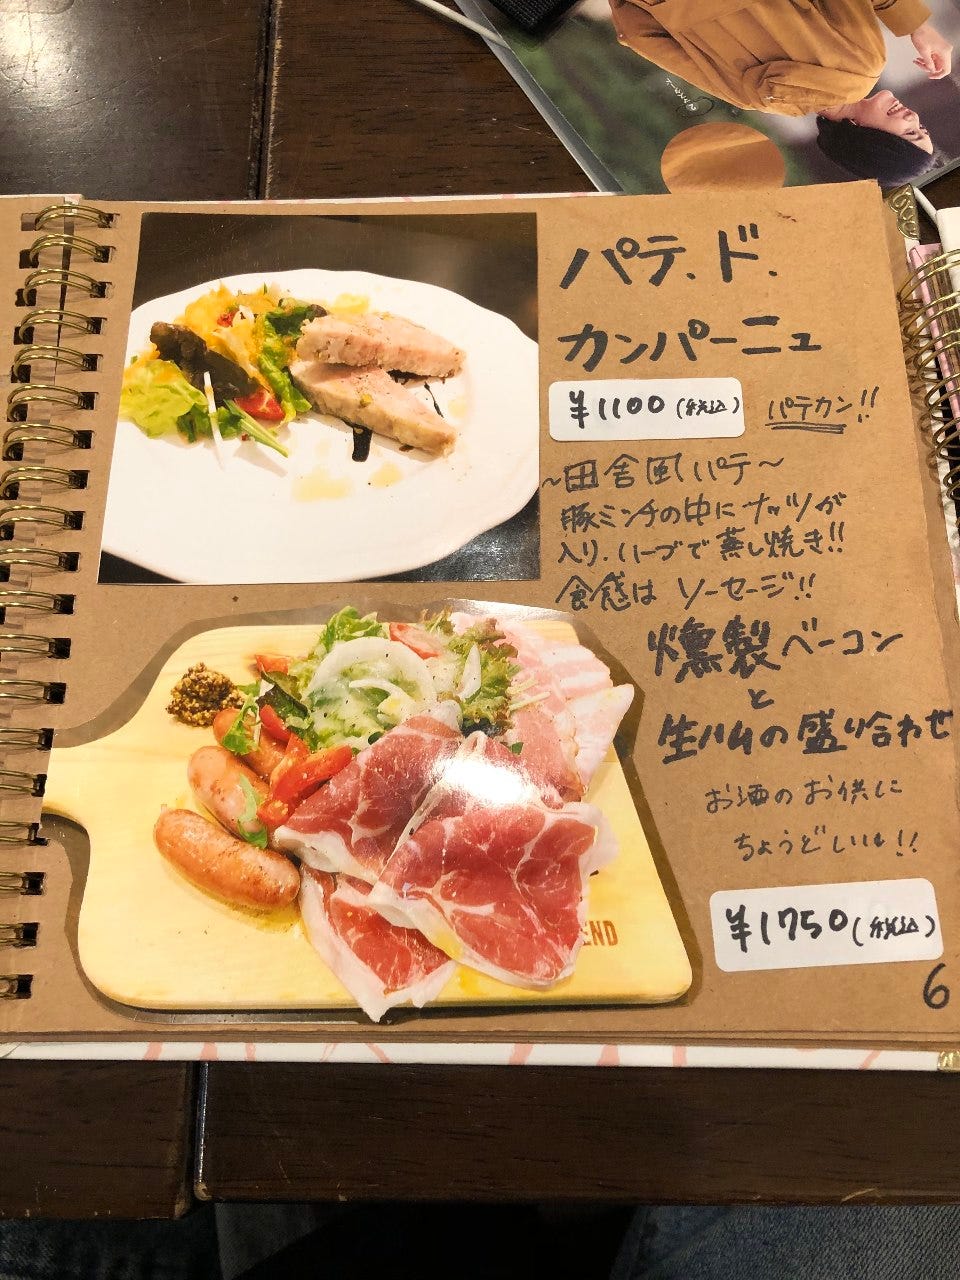 パテ.ド.
カンパーニュ
¥1100(税込)
パテカン!!
~田舎風パテ~
豚ミンチの中にナッツが
入り、ハーブで蒸し焼き!!
食感は ソーセージ!!
燻製ベーコン
と
生ハムの盛り合わせ
お酒のお供に
ちょうどいい!!
¥1750(税込)
END
6